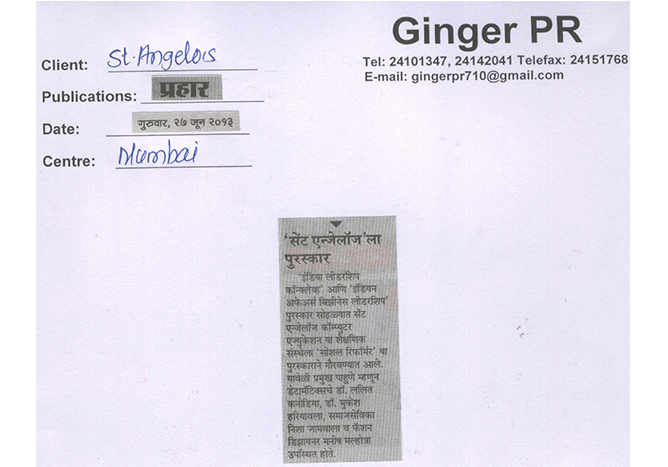 Ginger PR
Tel: 24101347, 24142041 Telefax: 24151768
E-mail: gingerpr710@gmail.com
Client: St. Angelois
Publications: प्रहार
Date: गुरुवार, २७ जून २०१३
Centre: Mumbai
'सेंट एन्जेलॉज'ला
पुरस्कार
'इंडिया लीडरशिप
कॉन्क्लेव्ह' आणि 'इंडियन
अफेअर्स बिझीनेस लीडरशिप'
पुरस्कार सोहळ्यात सेंट
एन्जेलॉज कॉम्प्युटर
एज्युकेशन या शैक्षणिक
संस्थेला 'सोशल रिफॉर्मर' या
पुरस्काराने गौरवण्यात आले.
यावेळी प्रमुख पाहुणे म्हणून
डेटामॅटिक्सचे डॉ. ललित
कनोडिया, डॉ. मुकेश
हरियावला, समाजसेविका
निशा जामवाला व फॅशन
डिझायनर मनीष मल्होत्रा
उपस्थित होते.